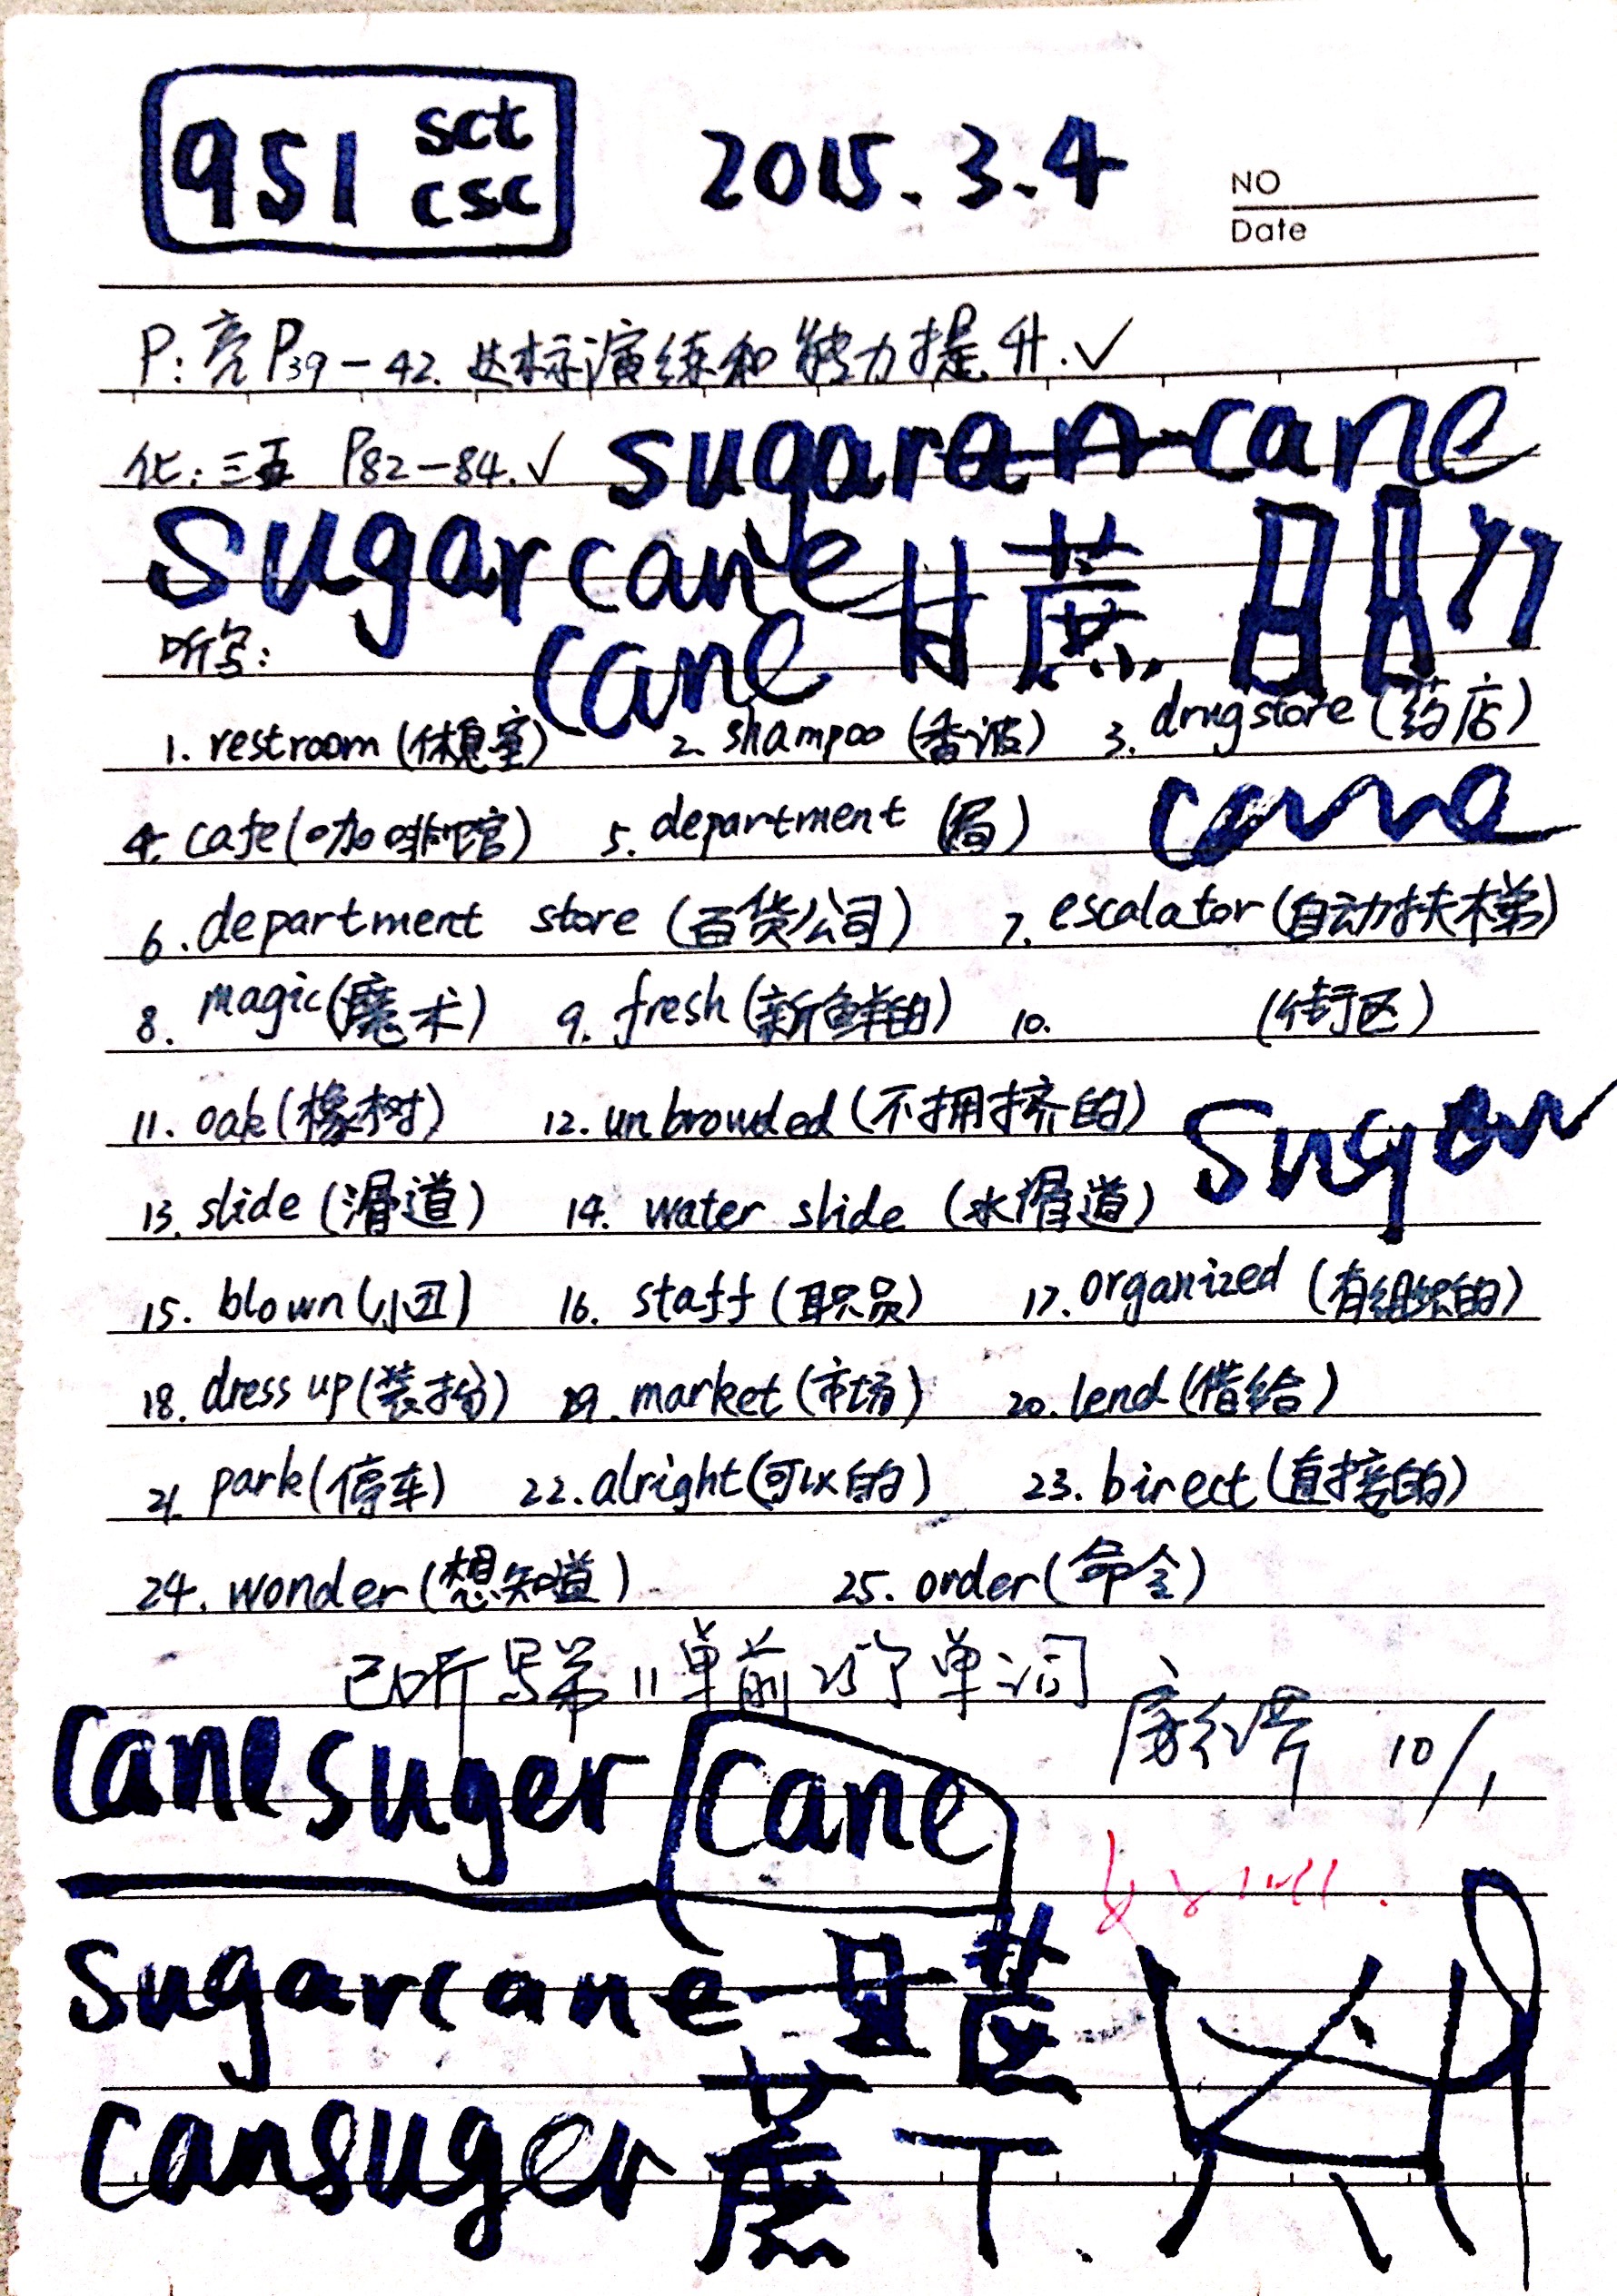 951 sct csc 2015.3.4
NO
Date
P: 亮P39-42. 达标演练和能力提升.✓
化: 三五 P82-84.✓ sugaran cane
Sugarcane 甘蔗
听写: cane
1. restroom (休息室) 2. shampoo (香波) 3. drugstore (药店)
4. cafe (咖啡馆) 5. department (局) cane
6. department store (百货公司) 7. escalator (自动扶梯)
8. magic (魔术) 9. fresh (新鲜的) 10. (街区)
11. oak (橡树) 12. unbrowded (不拥挤的) Sugar
13. slide (滑道) 14. water slide (水滑道)
15. blown (小丑) 16. staff (职员) 17. organized (有组织的)
18. dress up (装扮) 19. market (市场) 20. lend (借给)
21. park (停车) 22. alright (可以的) 23. birect (直接的)
24. wonder (想知道) 25. order (命令)
已听写第11单前25个单词
10/1
canesuger cane
sugarcane
cansuger 蔗 丁